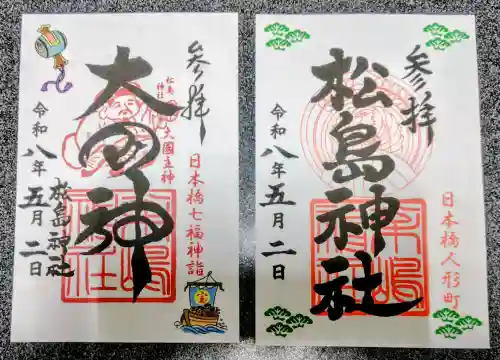 参拝
日本橋七福神詣
松島神社
大國主神
大国神
松島神社
令和八年五月二日
参拝
日本橋人形町
松島神社
令和八年五月二日